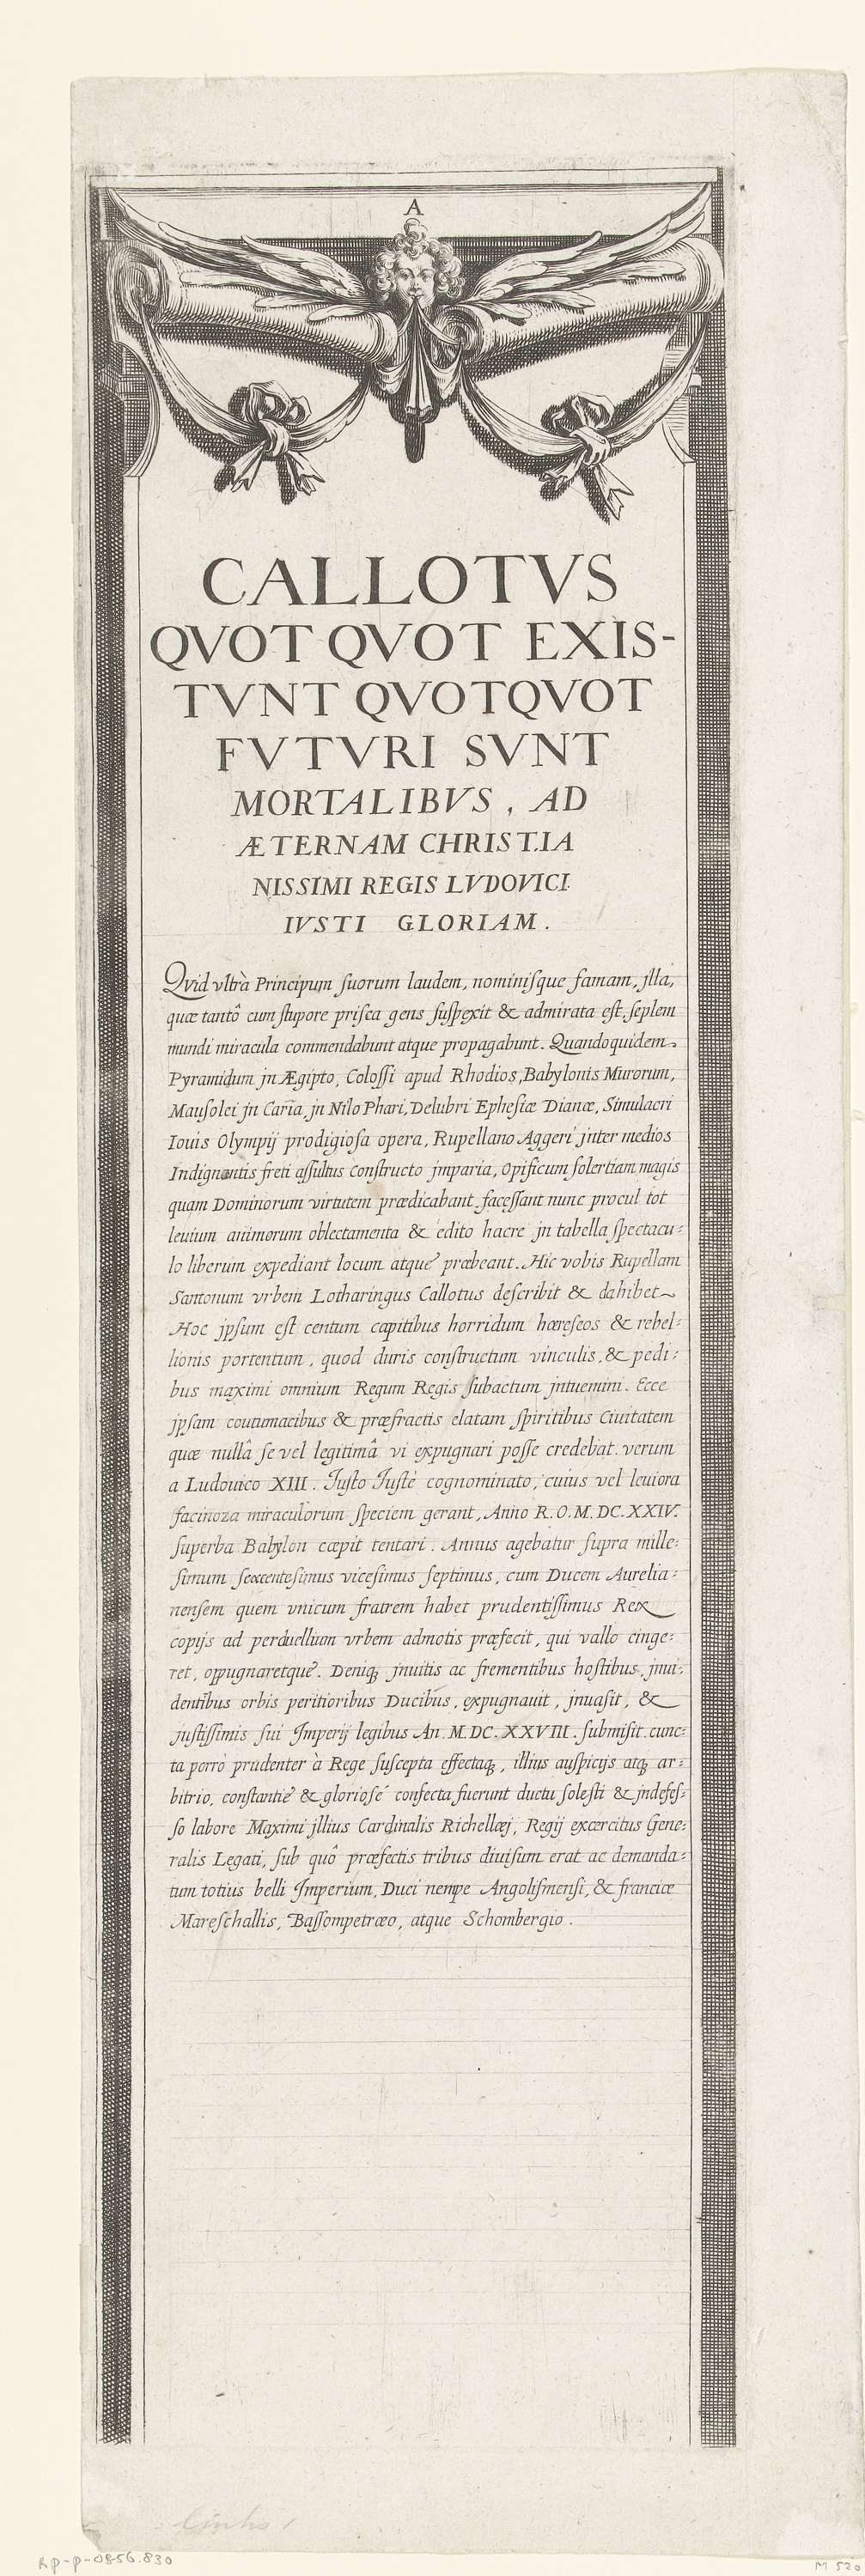 A
CALLOTVS
QVOT QVOT EXIS-
TVNT QVOTQVOT
FVTVRI SVNT
MORTALIBVS, AD
ÆTERNAM CHRISTIA
NISSIMI REGIS LVDOVICI
IVSTI GLORIAM.
Qvid vltrà Principum suorum laudem, nominisque famam, jlla,
quæ tantô cum stupore prisca gens suspexit & admirata est, septem
mundi miracula commendabunt atque propagabunt. Quandoquidem
Pyramidum jn Ægipto, Colossi apud Rhodios, Babylonis Murorum,
Mausolei jn Caria, jn Nilo Phari, Delubri Ephesiæ Dianæ, Simulacri
Iouis Olympij prodigiosa opera, Rupellano Aggeri jnter medios
Indignantis freti assultus constructo jmparia, Opificum solertiam magis
quam Dominorum virtutem prædicabant. facessant nunc procul tot
leuium animorum oblectamenta & edito hacre jn tabella spectacu=
lo liberum expediant locum atque præbeant. Hic vobis Rupellam
Santonum vrbem Lotharingus Callotus describit & dahibet
Hoc jpsum est centum capitibus horridum hæreseos & rebel=
lionis portentum, quod duris constructum vinculis, & pedi=
bus maximi omnium Regum Regis subactum jntuemini. Ecce
jpsam coutumacibus & præfractis elatam spiritibus Ciuitatem
quæ nullâ se vel legitimâ vi expugnari posse credebat. verum
a Ludouico XIII. Justo Justè cognominato, cuius vel leuiora
facinoza miraculorum speciem gerant, Anno R.O.M.DC.XXIV.
superba Babylon cœpit tentari. Annus agebatur supra mille=
simum sexcentesimus vicesimus septimus, cum Ducem Aurelia=
nensem quem vnicum fratrem habet prudentissimus Rex
copijs ad perduellium vrbem admotis præfecit, qui vallo cinge=
ret, oppugnaretque. Deniq, jnuitis ac frementibus hostibus, jnui=
dentibus orbis peritioribus Ducibus, expugnauit, jnuasit, &
justissimis sui Jmperij legibus An. M.DC.XXVIII. submisit. cunc=
ta porrò prudenter à Rege suscepta effectaq, illius auspicijs atq ar=
bitrio, constantiè & gloriosé confecta fuerunt ductu solesti & jndefes=
so labore Maximi jllius Cardinalis Richellæj, Regij excercitus Gene=
ralis Legati, sub quô præfectis tribus diuisum erat ac demanda=
tum totius belli Jmperium, Duci nempe Angolismensi, & franciæ
Mareschallis, Bassompetræo, atque Schombergio.
RP-P-OB-56.830
M 520